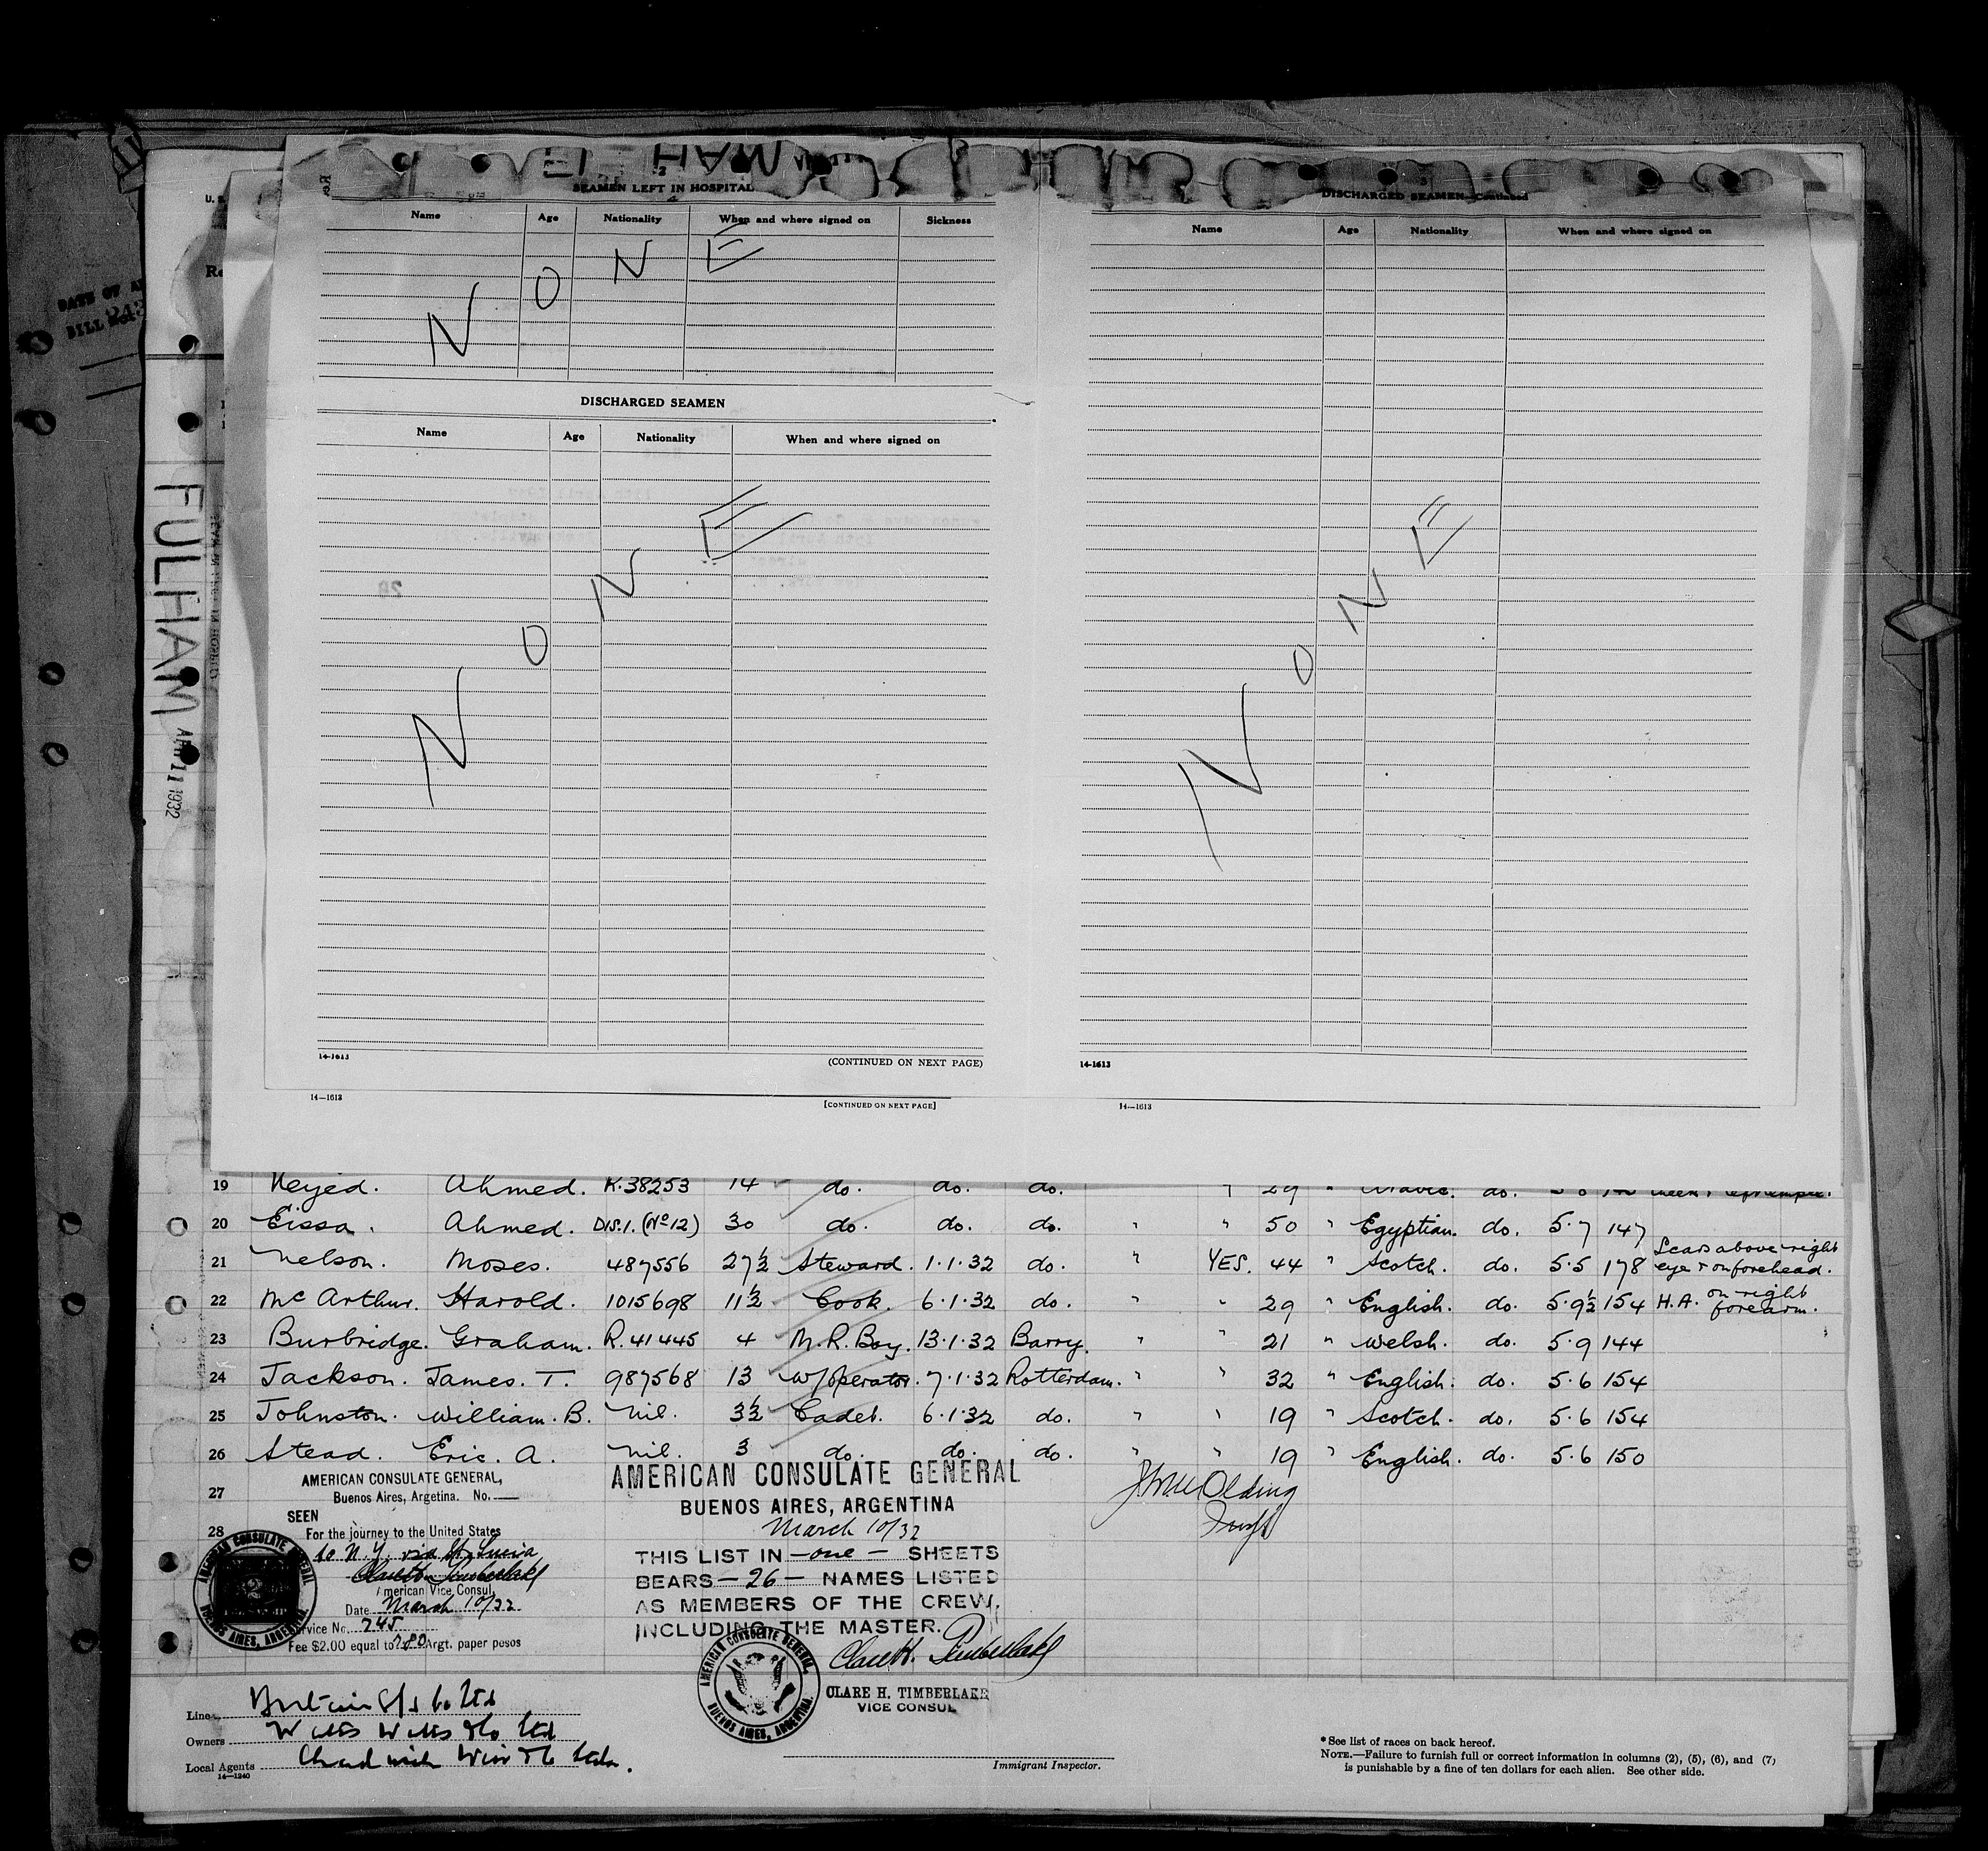 SEAMEN LEFT IN HOSPITAL
Name Age Nationality When and where signed on Sickness
NONE
DISCHARGED SEAMEN
Name Age Nationality When and where signed on
NONE
14-1613 (CONTINUED ON NEXT PAGE)
14—1613 [CONTINUED ON NEXT PAGE]
3
DISCHARGED SEAMEN—Continued
Name Age Nationality When and where signed on
NONE
14-1613
14—1613
DATE OF
BILL
FULHAM
APR 11 1932
19 Ahmed. R.38253 14 do. do. do. " 29 " do.
20 Eissa. Ahmed. DIS.1. (No 12) 30 do. do. do. " " 50 " Egyptian. do. 5.7 147
21 Nelson. Moses. 487556 27½ Steward. 1.1.32 do. " YES. 44 " Scotch. do. 5.5 178 Scars above right eye & on forehead.
22 McArthur. Harold. 1015698 11½ Cook. 6.1.32 do. " " 29 " English. do. 5.9½ 154 H.A. on right forearm.
23 Burbridge. Graham. R.41445 4 M.R.Boy. 13.1.32 Barry. " " 21 " Welsh. do. 5.9 144
24 Jackson. James. T. 987568 13 W/Operator. 7.1.32 Rotterdam. " " 32 " English. do. 5.6 154
25 Johnston. William. B. nil. 3½ Cadet. 6.1.32 do. " " 19 " Scotch. do. 5.6 154
26 Stead. Eric. A. nil. 3 do. do. do. " " 19 " English. do. 5.6 150
27
28
AMERICAN CONSULATE GENERAL,
Buenos Aires, Argetina. No.
SEEN
For the journey to the United States
to N.Y. via St. Lucia
American Vice Consul,
Date March 10/32
Service No. 745
Fee $2.00 equal to 7.80 Argt. paper pesos
AMERICAN CONSULATE GENERAL, BUENOS AIRES, ARGENTINA.
AMERICAN CONSULATE GENERAL
BUENOS AIRES, ARGENTINA
March 10/32
THIS LIST IN —one— SHEETS
BEARS —26— NAMES LISTED
AS MEMBERS OF THE CREW,
INCLUDING THE MASTER.
Clare H. Timberlake
CLARE H. TIMBERLAKE
VICE CONSUL
AMERICAN CONSULATE GENERAL, BUENOS AIRES, ARGENTINA.
Line Britain S/S Co Ltd
Owners Watts Watts & Co Ltd
Local Agents Chadwick Weir & Co Ltda.
14—1240
Immigrant Inspector.
*See list of races on back hereof.
NOTE.—Failure to furnish full or correct information in columns (2), (5), (6), and (7)
is punishable by a fine of ten dollars for each alien. See other side.